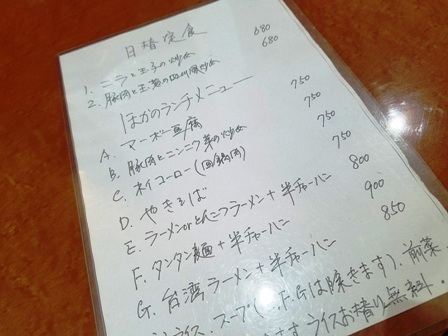 日替定食
1. ニラと玉子の炒め 680
2. 豚肉と玉葱の四川風炒め 680
ほかのランチメニュー
A. マーボー豆腐 750
B. 豚肉とニンニク芽の炒め 750
C. ホイコーロー(回鍋肉) 750
D. やきそば 750
E. ラーメンorとんこつラーメン+半チャーハン 800
F. タンタン麺+半チャーハン 900
G. 台湾ラーメン+半チャーハン 850
ライス、スープ( F.Gは除きます)、前菜
ます ライスお替り無料.